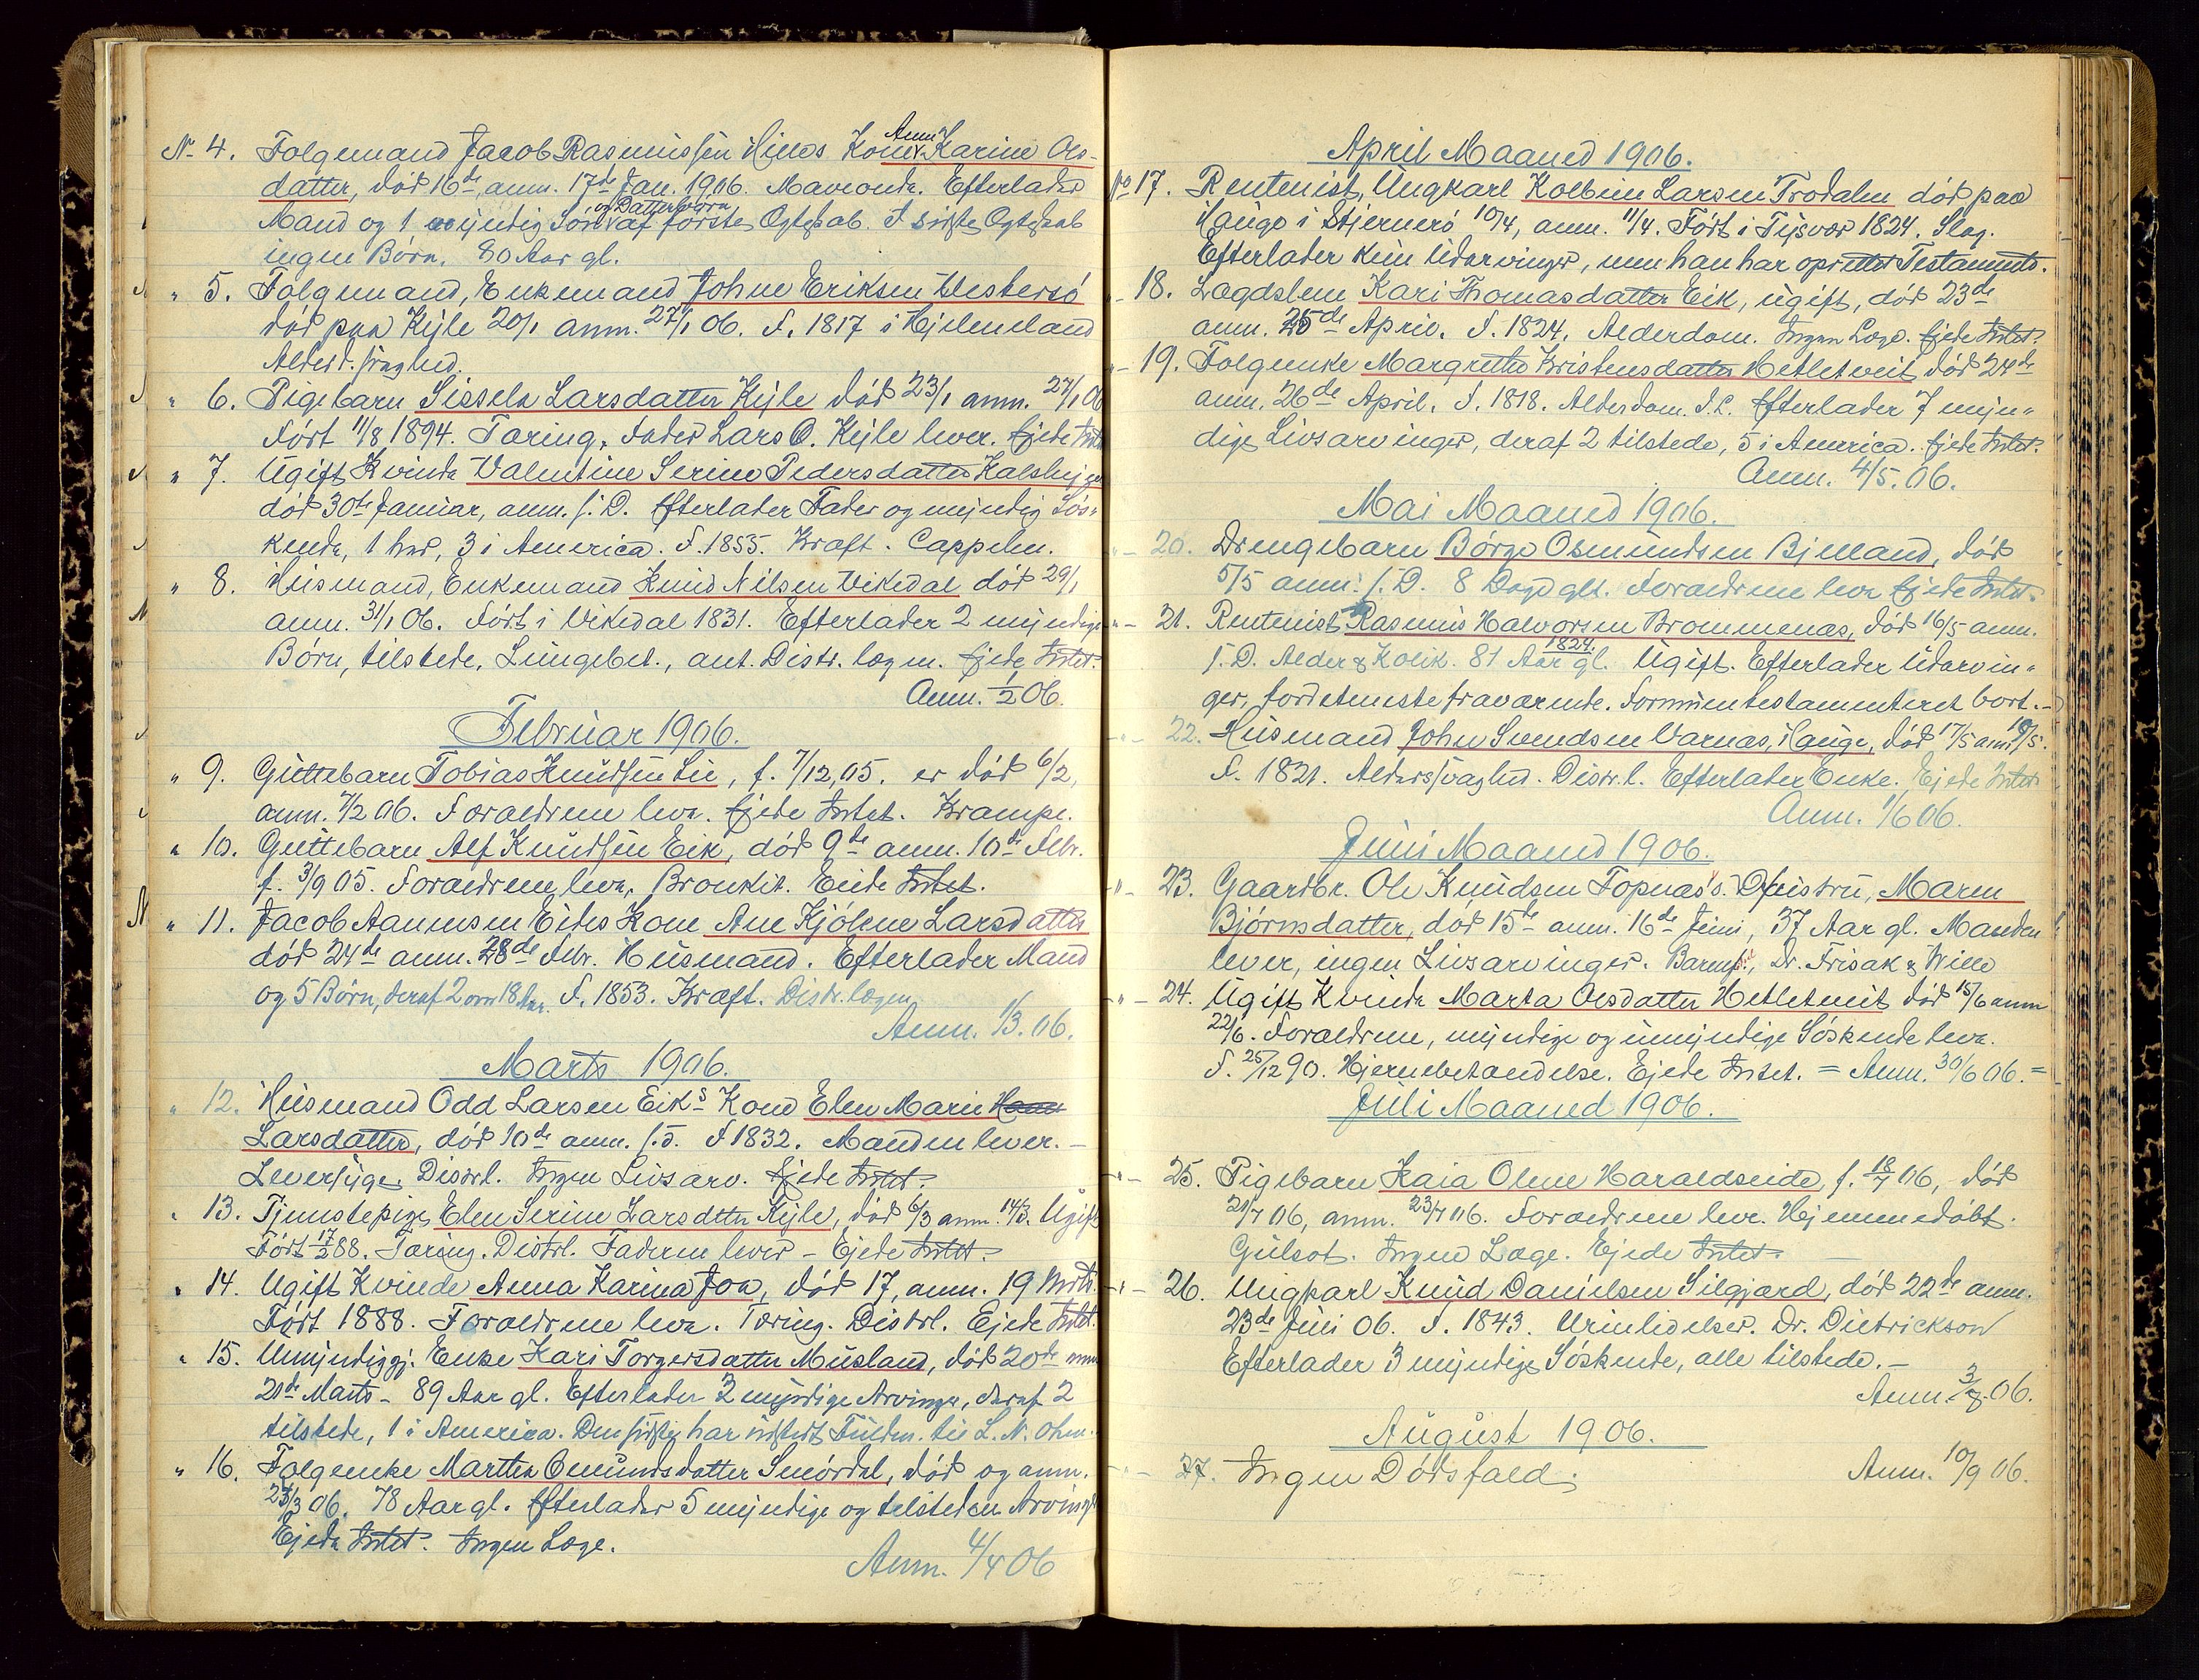 No 4. Folgemand Jacob Rasmussen Hilles Kone Anne Karine Ols-
datter, död 16de, anm. 17de Jan. 1906. Mavevonde. Efterlader
Mand og 1 myndig Sön og Datterbörn af förste Ægteskab. I sidste Ægteskab
ingen Börn. 80 Aar gl.
" 5. Folgemand, Enkemand Johne Eriksen Vestersö
död paa Kyle 20/1 anm. 27/1 06. F. 1817 i Hjelmeland
Alderd. svaghed.
" 6. Pigebarn Sissela Larsdatter Kyle död 23/1 anm. 27/1 06
Födt 11/8 1894. Tæring. Fader Lars O. Kyle lever. Ejede Intet
" 7. Ugift Kvinde Valentine Serine Pedersdatter Kalshejgen
död 30te Januar, anm. s. D. Efterlader Fader og myndig Søs-
kende, 1 her, 3 i America. F. 1855. Kræft. Cappelen.
" 8. Husmand, Enkemand Knud Nilsen Vikedal död 29/1
anm. 31/1 06. Födt i Vikedal 1831. Efterlader 2 myndige
Börn, tilstede. Lungebet., ant. Distr. lægen. Ejede Intet.
Anm. 1/2 06.
Februar 1906.
" 9. Guttebarn Tobias Knudsen Lie, f. 7/12, 05. er död 6/2,
anm. 7/2 06. Forældrene leve. Ejede Intet. Krampe.
" 10. Guttebarn Alf Knudsen Eik, död 9de anm. 10de Febr.
f. 3/9 05. Forældrene leve, Bronkit. Eiede Intet.
" 11. Jacob Aanensen Eides Kone Ane Kjölene Larsdatter
död 24de anm. 28de Febr. Husmand. Efterlader Mand
og 5 Börn, deraf 2 over 18 Aar. F. 1853. Kræft. Distr. lægen
Anm. 1/3. 06.
Marts 1906.
" 12. Husmand Odd Larsen Eik's Kone Elen Marie Hans
Larsdatter, död 10de anm. s. D. F 1832. Manden lever. –
Leversyge. Distrl. Ingen Livsarv. Ejede Intet.
" 13. Tjenestepige Elen Serine Larsdtter Kyle, död 6/3 anm. 14/3. Ugift
Födt 17/2 88. Tæring. Distrl. Faderen lever – Ejede Intet.
" 14. Ugift Kvinde Anna Karina Joa, död 17, anm. 19 Mrts.
Födt 1888. Forældrene leve. Tæring. Distrl. Ejede Intet.
" 15. Umyndiggj. Enke Kari Torgersdatter Musland, död 20de anm
21de Marts – 89 Aar gl. Efterlader 3 myndige Arvinger, deraf 2
tilstede, 1 i America. Den sidste har udstedt Fuldm. til L. N.
" 16. Folgenke Martha Omundsdatter Smördal, död og anm.
23/3 06. 78 Aar gl. Efterlader 5 myndige og tilsteden Arvinger
Ejede Intet. Ingen Læge.
Anm. 4/4 06
April Maaned 1906.
No 17. Rentenist, Ungkarl Kolbein Larsen Trodalen död paa
Hauge i Stjernerö 10/4, anm. 11/4. Födt i Tysvær 1824. Slag.
Efterlader kun Udarvinger, men han har oprettet Testamente.
" 18. Lægdslem Kari Thomasdatter Eik, ugift, död 23de
anm. 25de April. F. 1824. Alderdom. Ingen Læge. Ejede Intet.
" 19. Folgenke Margrethe Kristensdatter Hetletveit död 24de
anm. 26de April. F. 1818. Alderdom. D. L. Efterlader 7 myn-
dige Livsarvinger, deraf 2 tilstede, 5 i America. Ejede Intet.
Anm. 4/5. 06.
Mai Maaned 1906.
" 20. Drengebarn Börge Osmundsen Bjelland, död
5/5 anm. s. D. 8 Dage glt. Forældrene leve Ejede Intet.
" 21. Rentenist Rasmus Halvorsen Brommenæs, död 16/5 anm.
s. D. Alder & Kolik. 81 Aar gl. 1824. Ugift. Efterlader Udarvin-
ger, fordetmeste fraværende. Formuen testamenteret bort. –
" 22. Husmand John Svendsen Varnes, Hauge, död 17/5 anm 19/5.
F. 1821. Alderssvaghed. Distr. l. Efterlader Enke. Ejede Intet
Anm. 1/6 06.
Juni Maaned 1906.
" 23. Gaardbr. Ole Knudsen Topnæs's Hustru, Maren
Björnsdatter, död 15de anm. 16de Juni, 37 Aar gl. Manden
lever, ingen Livsarvinger. Barnf., Dr. Frisak & Wille
" 24. Ugift Kvinde Marta Olsdatter Hetletveit död 15/6 anm
22/6. Forældrene, myndige og umyndige Söskende leve.
F. 25/12 90. Hjernebetændelse. Ejede Intet. = Anm. 30/6 06. =
Juli Maaned 1906.
" 25. Pigebarn Kaia Olene Haraldseide, f. 18/7 06, död
21/7 06, anm. 23/7 06. Forældrene leve. Hjemmedöbt.
Gulsot. Ingen Læge. Ejede Intet.
" 26. Ungkarl Knud Danielsen Silgjerd, död 22de anm.
23de Juni 06. F. 1843. Urinlidelser. Dr. Dietrickson
Efterlader 3 myndige Söskende, alle tilstede. –
Anm. 3/8. 06.
August 1906.
" 27. Ingen Dödsfald. Anm. 10/9 06.